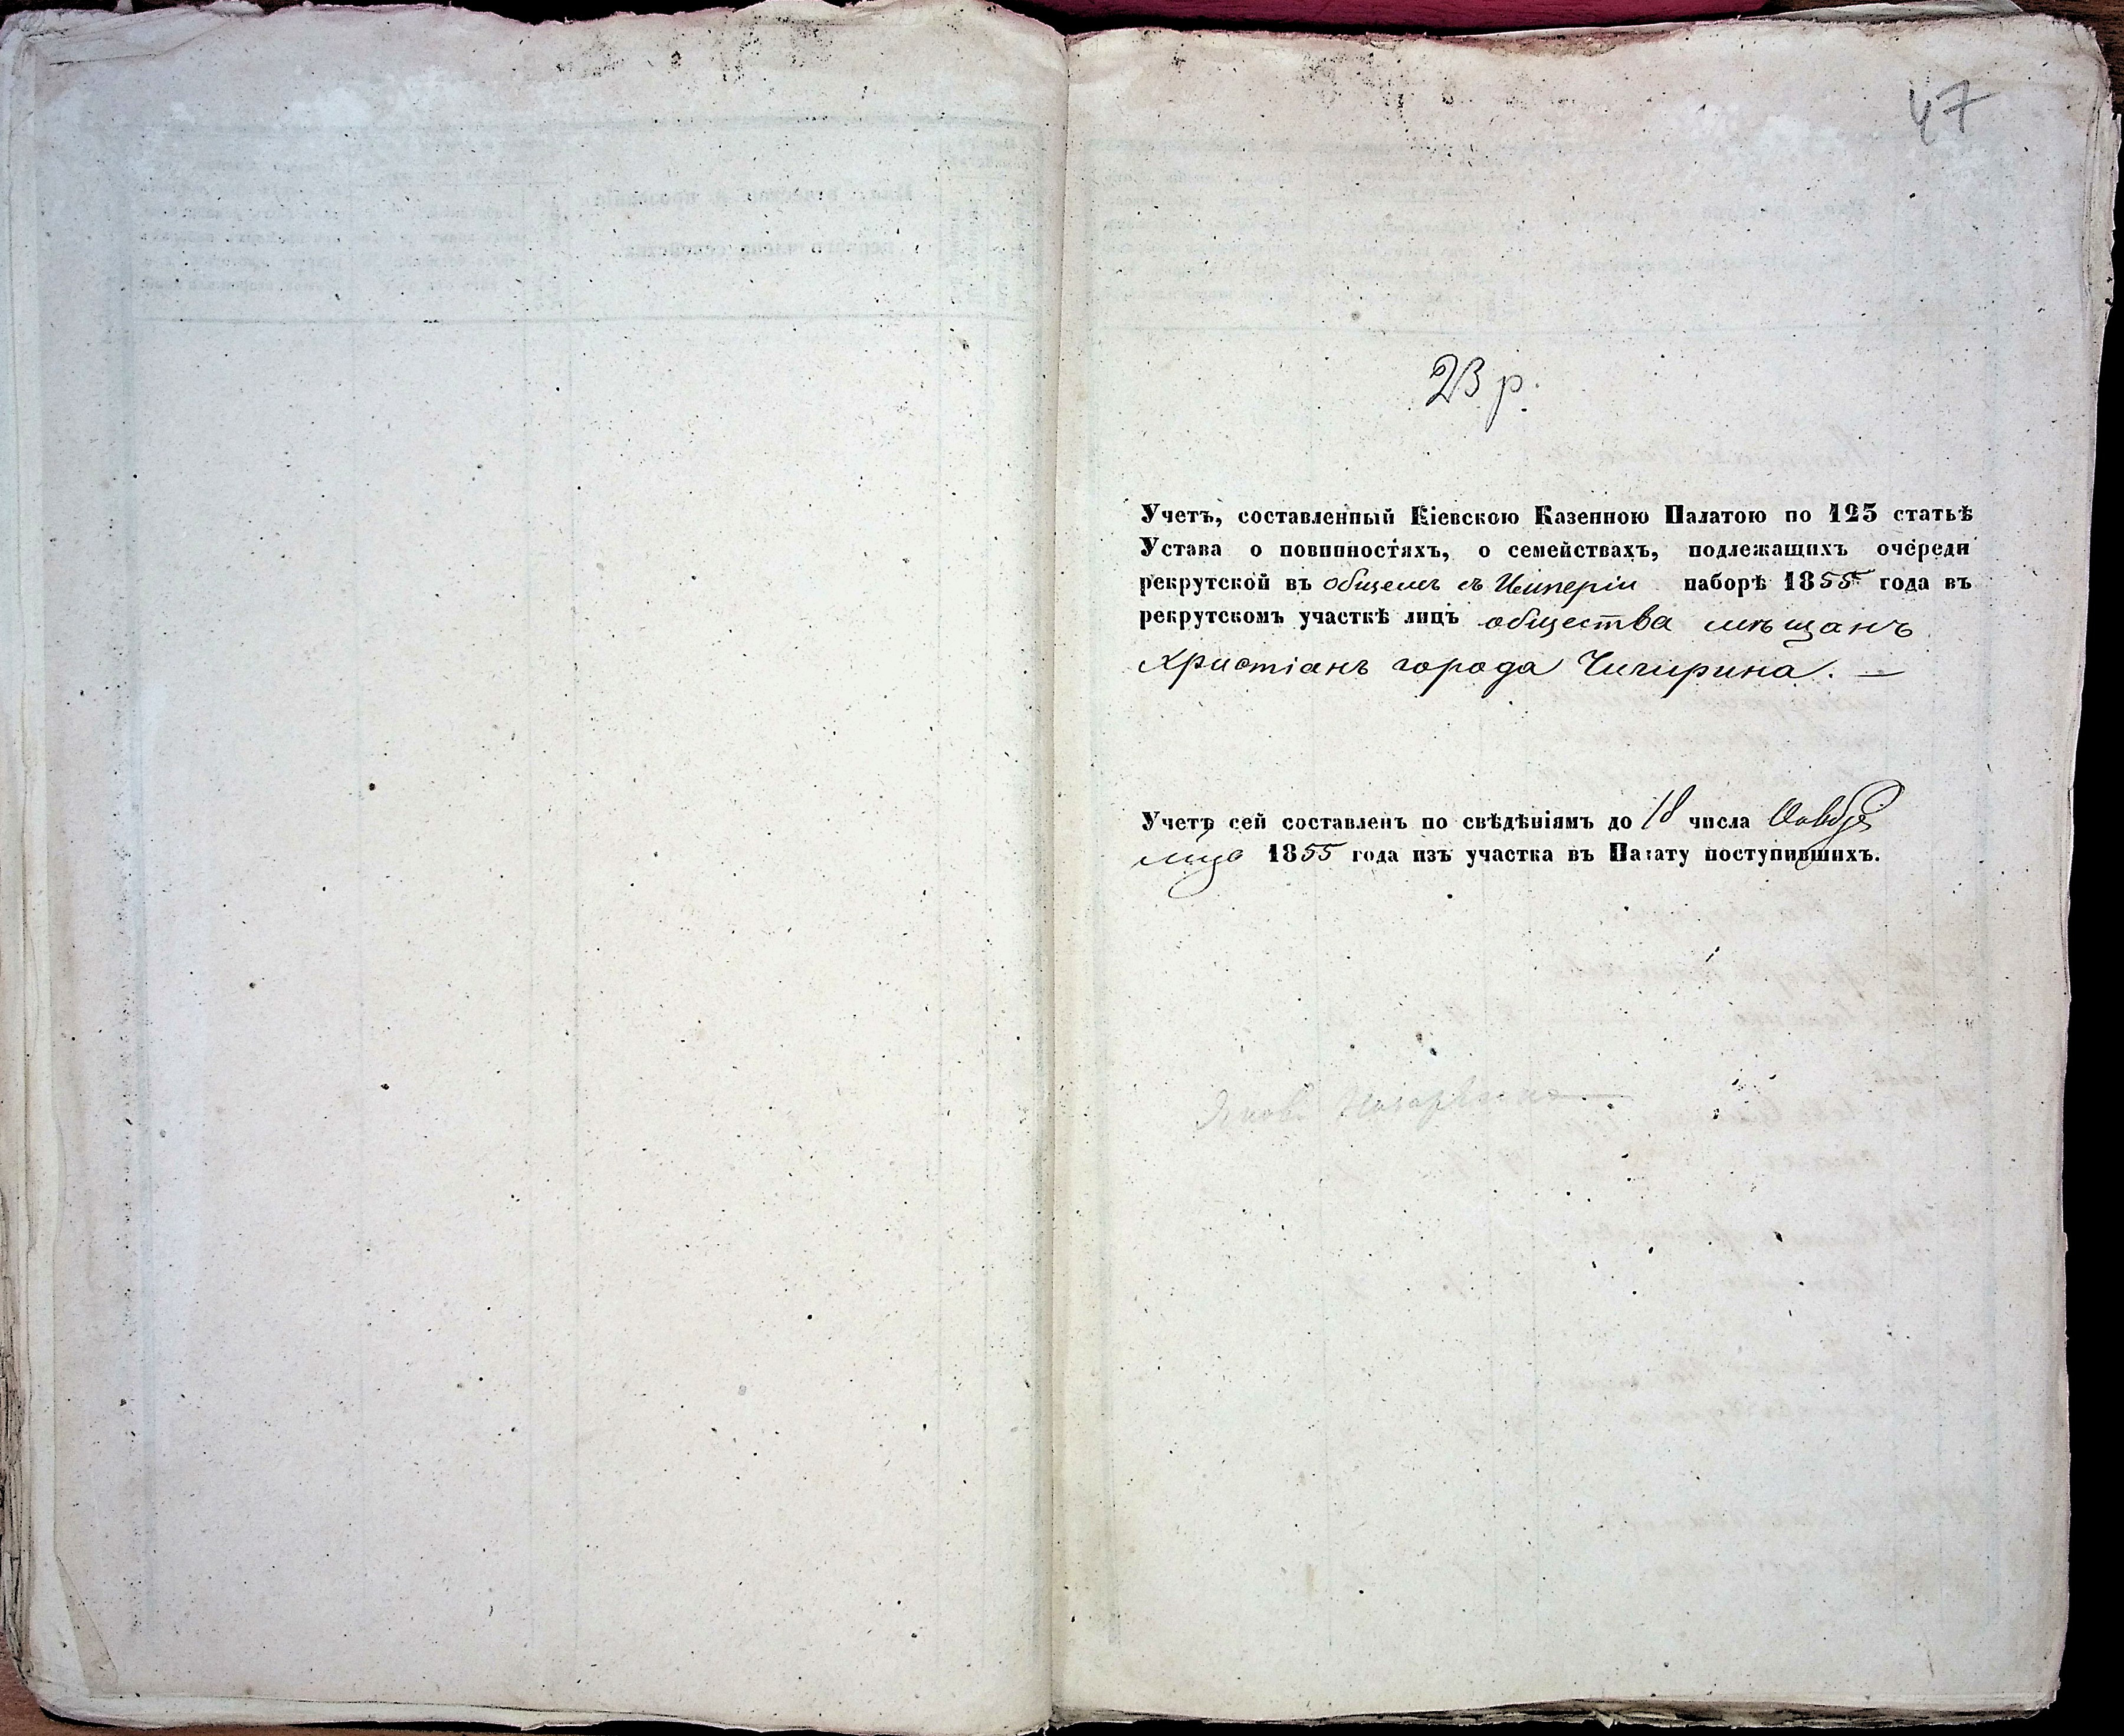 47
23 р.
Учетъ, составленный Кіевскою Казенною Палатою по 125 статьѣ
Устава о повинностяхъ, о семействахъ, подлежащихъ очереди
рекрутской въ общемъ съ Имперіи наборѣ 1855 года въ
рекрутскомъ участкѣ лицъ общества мѣщанъ
христіанъ города Чигирина. —
Учетъ сей составленъ по свѣдѣніямъ до 18 числа
1855 года изъ участка въ Палату поступившихъ.